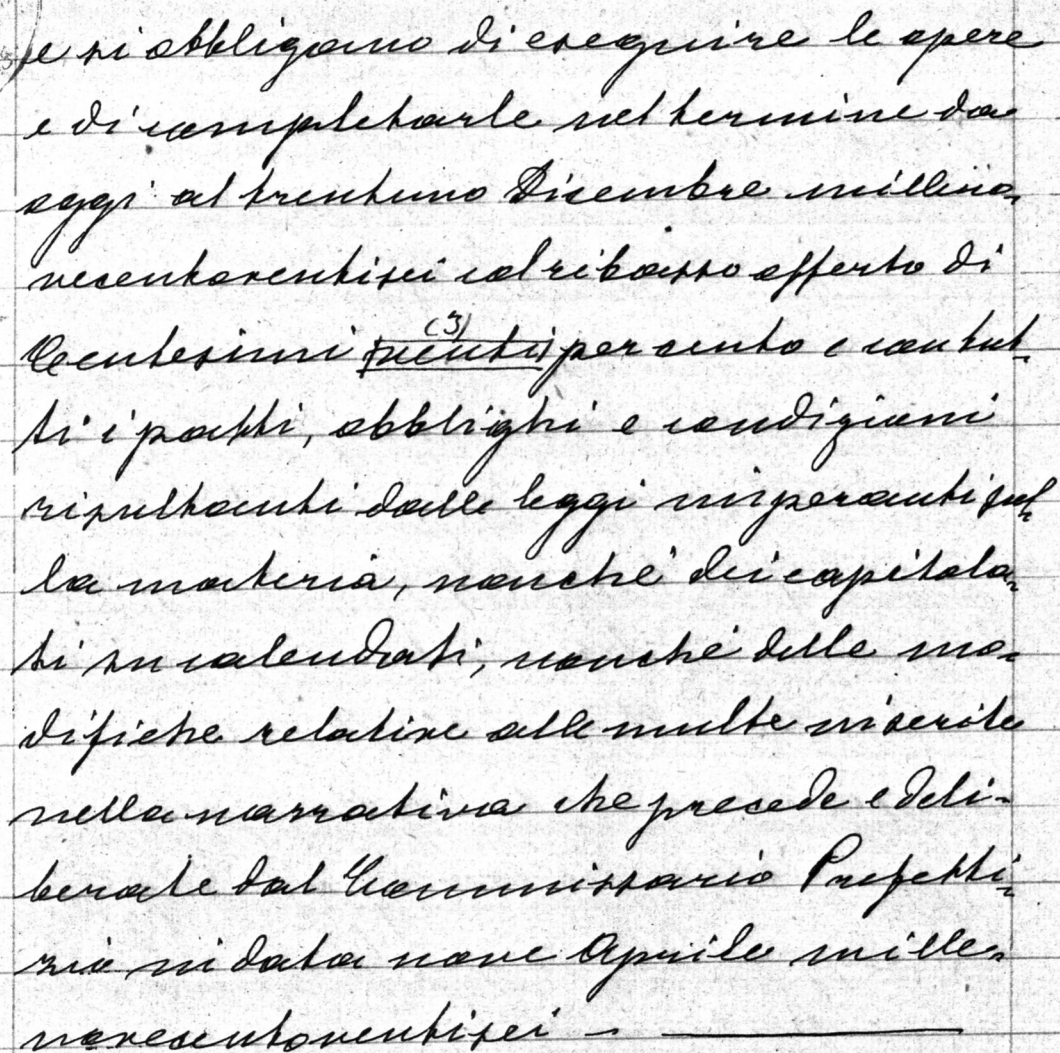 e si obbligano di eseguire le opere
e di completarle nel termine da
oggi al trentuno Dicembre milleno=
vecentoventisei col ribasso offerto di
Centesimi (3) |venti| per cento e con tut=
ti i patti, obblighi e condizioni
risultanti dalle leggi imperanti sul=
la materia, nonché dei capitola=
ti su calendati, nonché delle mo=
difiche relative alle multe inserite
nella narrativa che precede e deli=
berate dal Commissario Prefetti=
zio in data nove Aprile mille=
novecentoventisei –